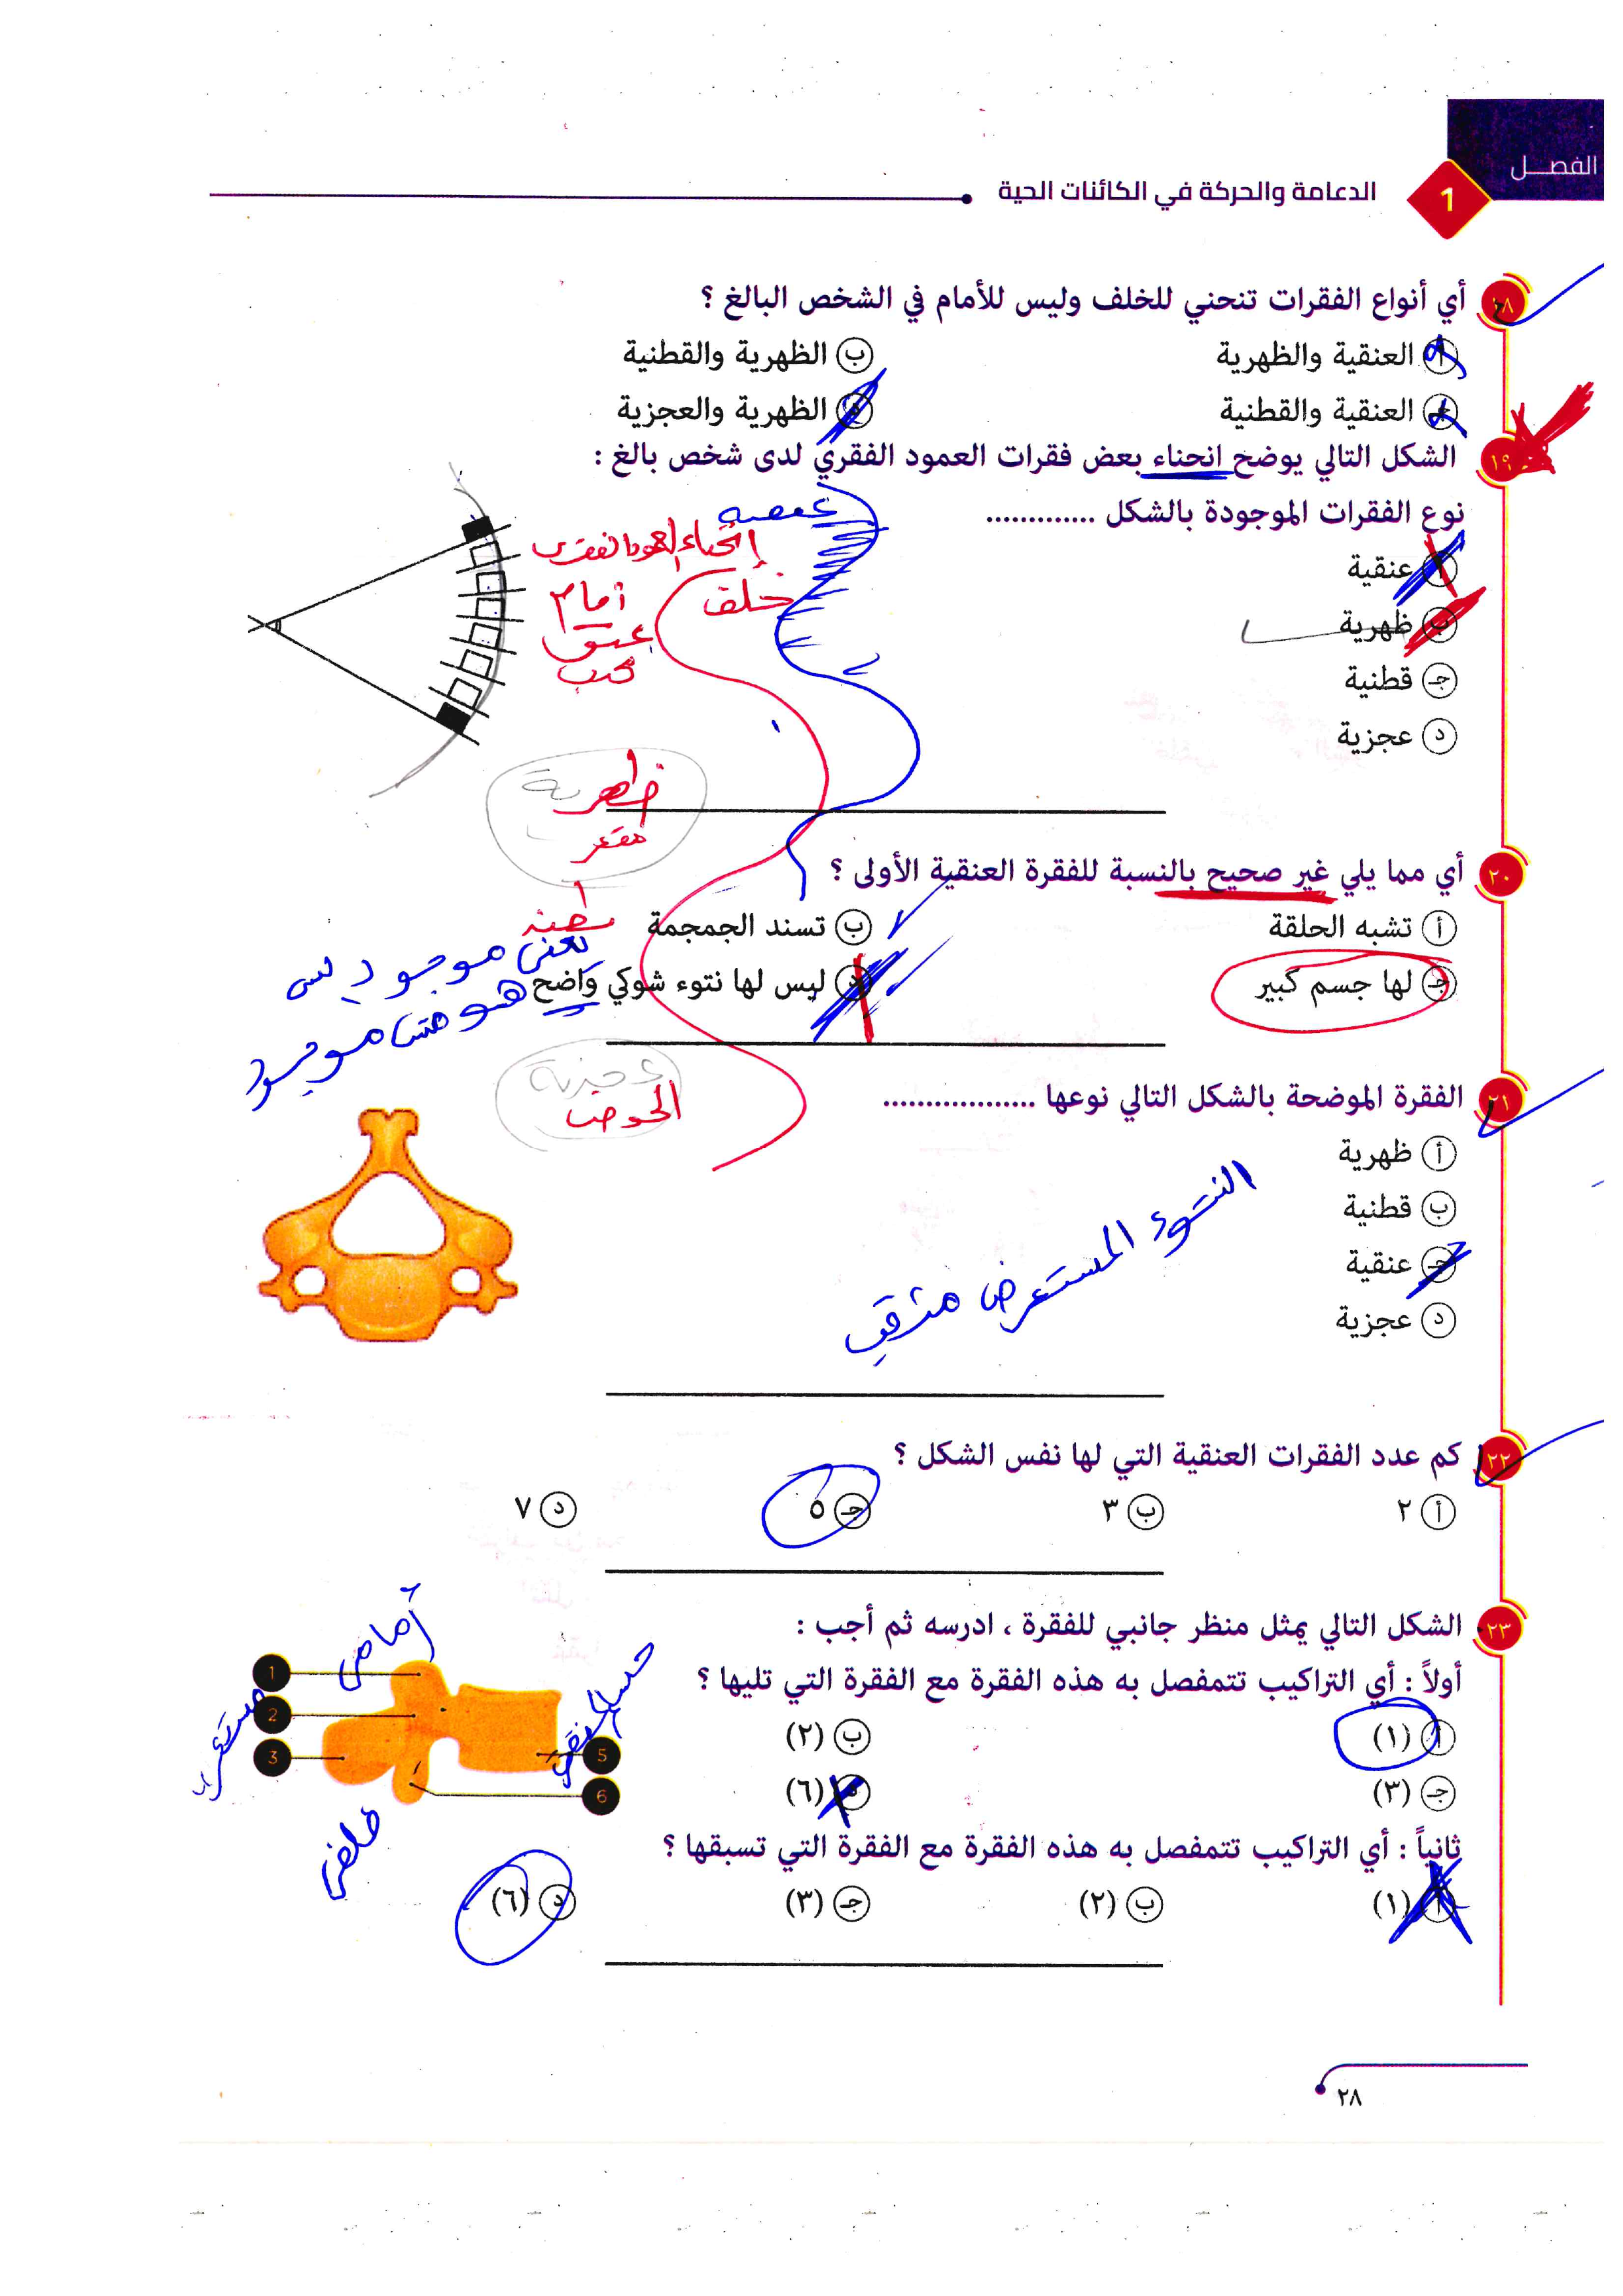 الفصـــل
1
الدعامة والحركة في الكائنات الحية
١٨ أي أنواع الفقرات تنحني للخلف وليس للأمام في الشخص البالغ ؟
أ العنقية والظهرية
ب الظهرية والقطنية
جـ العنقية والقطنية
د الظهرية والعجزية
١٩ الشكل التالي يوضح انحناء بعض فقرات العمود الفقري لدى شخص بالغ :
نوع الفقرات الموجودة بالشكل .............
أ عنقية
ب ظهرية
جـ قطنية
د عجزية
عنقية
إنحناء العمود الفقرى
أمام
خلف
عنق
ظهرية
مقعر
٢٠ أي مما يلي غير صحيح بالنسبة للفقرة العنقية الأولى ؟
أ تشبه الحلقة
ب تسند الجمجمة
جـ لها جسم كبير
د ليس لها نتوء شوكي واضح
يعنى موجود بس
هو مش موجود
عجزية
الحوض
٢١ الفقرة الموضحة بالشكل التالي نوعها ..................
أ ظهرية
ب قطنية
جـ عنقية
د عجزية
النتوء المستعرض مثقب
٢٢ كم عدد الفقرات العنقية التي لها نفس الشكل ؟
أ ٢
ب ٣
جـ ٥
د ٧
٢٣ الشكل التالي يمثل منظر جانبي للفقرة ، ادرسه ثم أجب :
أولاً : أي التراكيب تتمفصل به هذه الفقرة مع الفقرة التي تليها ؟
أ (١)
ب (٢)
جـ (٣)
د (٦)
1
2
3
5
6
أمامى
جسم الفقرة
خلفى
ثانياً : أي التراكيب تتمفصل به هذه الفقرة مع الفقرة التي تسبقها ؟
أ (١)
ب (٢)
جـ (٣)
د (٦)
٢٨